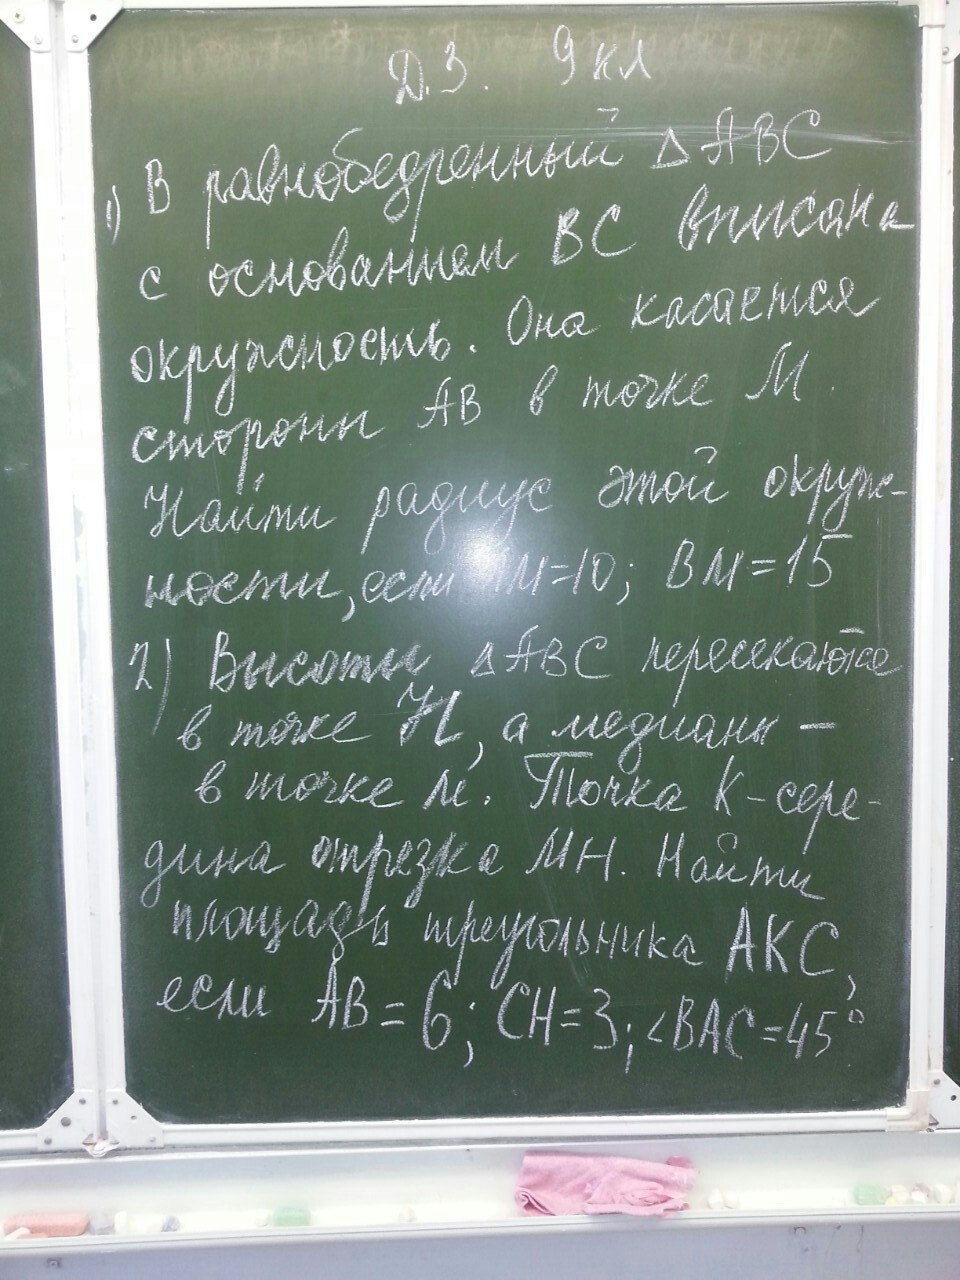 Д.З. 9 кл
1) В равнобедренный △ ABC
с основанием BC вписана
окружность. Она касается
стороны AB в точке M.
Найти радиус этой окруж-
ности, если =10; BM=15
2) Высоты △ABC пересекаются
в точке H, а медианы -
в точке M. Точка K-сере-
дина отрезка MH. Найти
площадь треугольника AKC,
если AB=6; CH=3; ∠BAC=45°